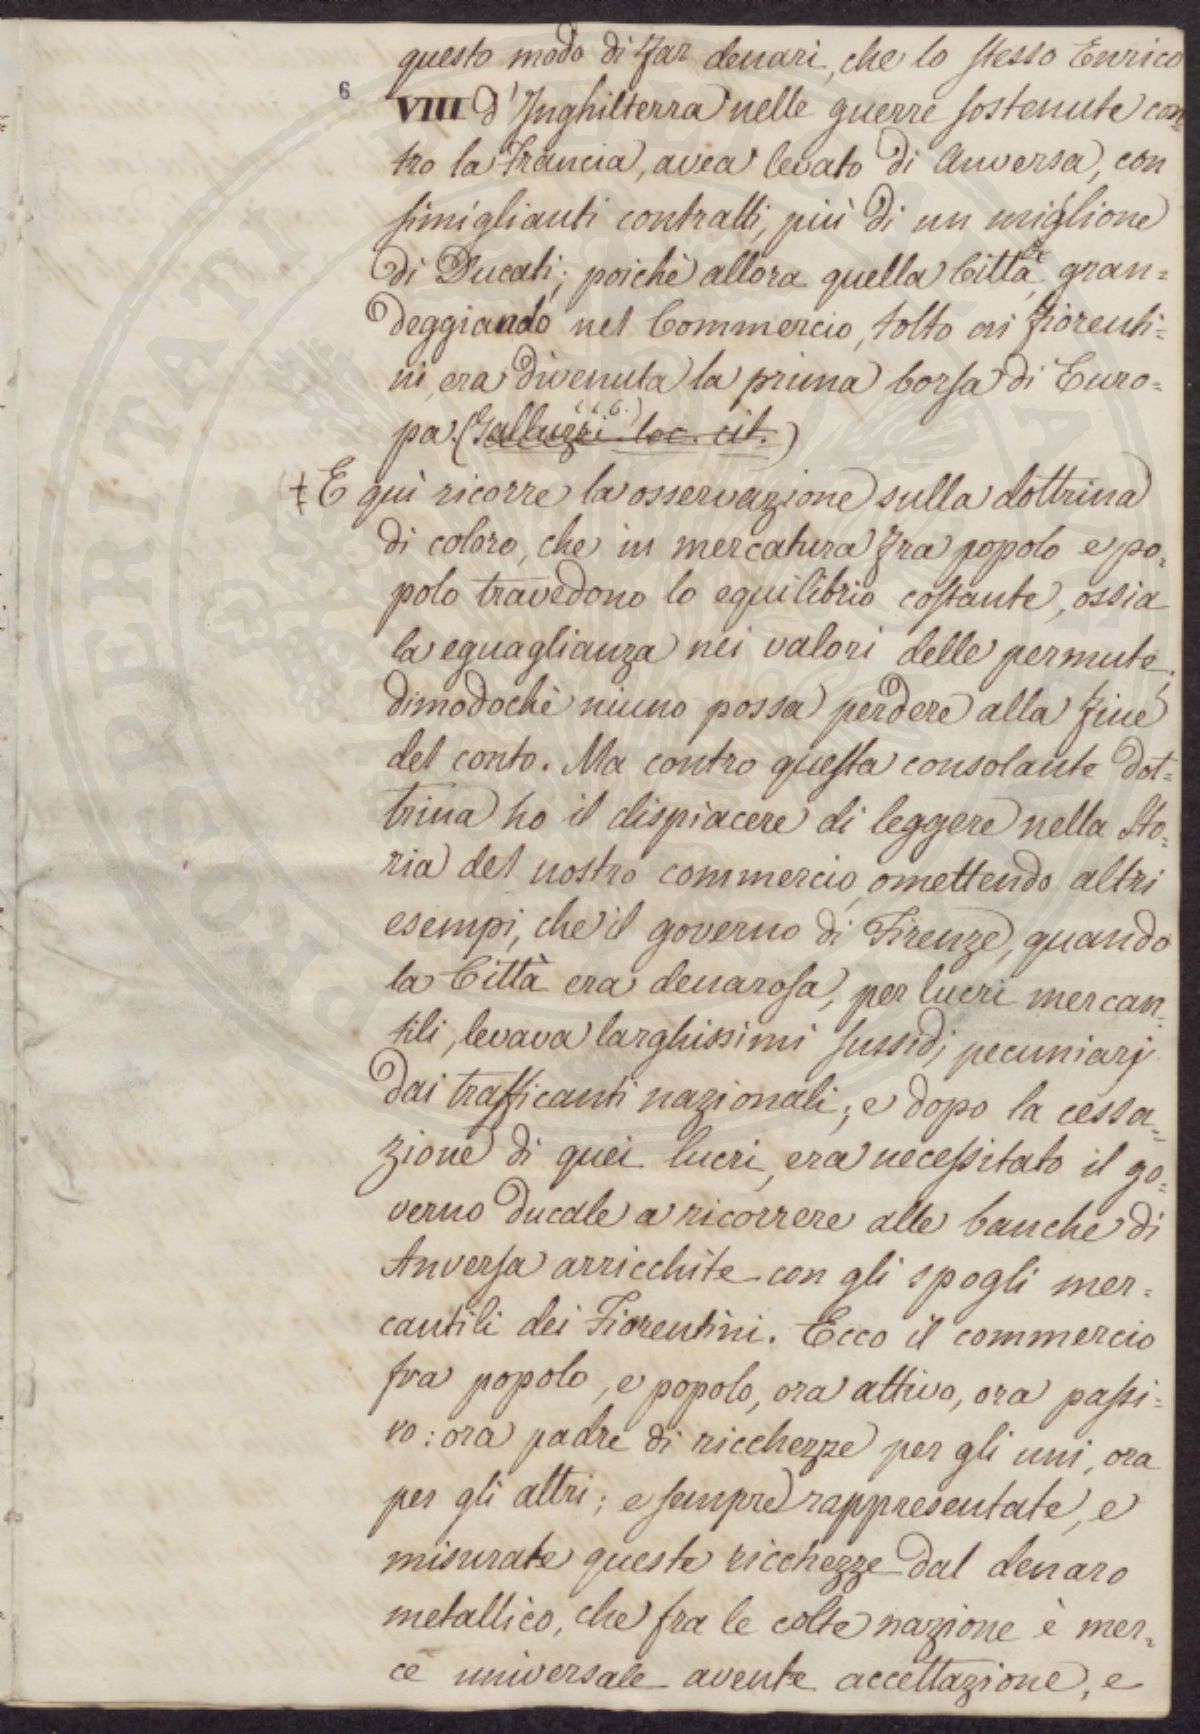 questo modo di far denari, che lo stesso Enrico
6
VIII d'Inghilterra nelle guerre sostenute con=
tro la Francia, avea levato di Anversa, con
simiglianti contratti, più di un miglione
di Ducati; poichè allora quella Città, gran=
deggiando nel Commercio, tolto ai Fiorenti=
ni, era divenuta la prima borsa di Euro=
pa. (Galluzzi loc. cit.)
E quì ricorre la osservazione sulla dottrina
di coloro, che in mercatura fra popolo e po=
polo travedono lo equilibrio costante, ossia
la eguaglianza nei valori delle permute,
dimodochè niuno possa perdere alla fine
del conto. Ma contro questa consolante dot=
trina ho il dispiacere di leggere nella Sto=
ria del nostro commercio, omettendo altri
esempi, che il governo di Firenze, quando
la Città era denarosa, per lucri mercan=
tili, levava larghissimi sussidj pecuniarj
dai trafficanti nazionali; e dopo la cessa=
zione di quei lucri, era necessitato il go=
verno ducale a ricorrere alle banche di
Anversa arricchite con gli spogli mer=
cantili dei Fiorentini. Ecco il commercio
fra popolo, e popolo, ora attivo, ora passi=
vo: ora padre di ricchezze per gli uni, ora
per gli altri; e sempre rappresentate, e
misurate queste ricchezze dal denaro
metallico, che fra le colte nazione è mer=
ce universale avente accettazione, e
PROSPERITATI PUBLICAE